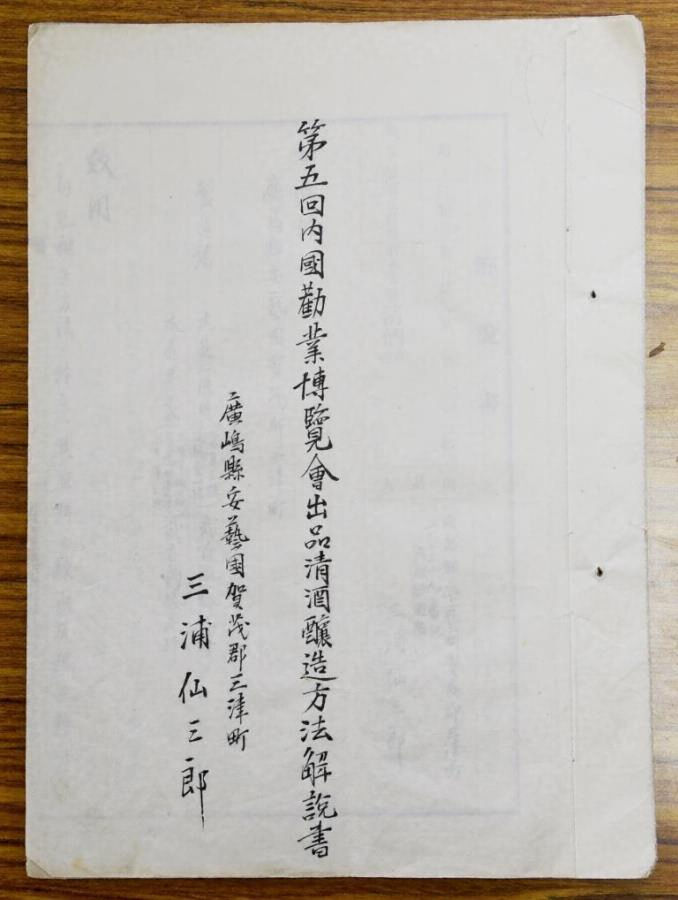 第五回内國勸業博覽會出品清酒釀造方法解説書
廣嶋縣安藝國賀茂郡三津町
三浦仙三郎